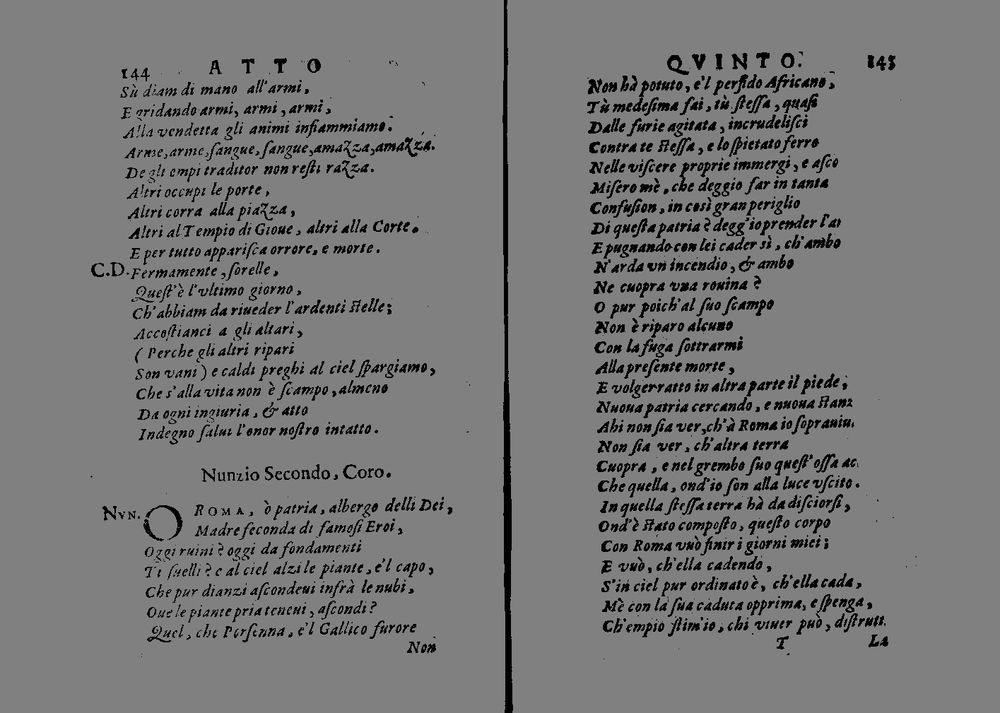 144 ATTO
Sù diam di mano all'armi,
E gridando armi, armi, armi,
Alla vendetta gli animi infiammiamo.
Arme, arme, ſangue, ſangue, amazza, amazza.
De gli empi traditor non reſti razza.
Altri occupi le porte,
Altri corra alla piazza,
Altri al Tempio di Gioue, altri alla Corte.
E per tutto appariſca orrore, e morte.
C.D. Fermamente, ſorelle,
Queſt'è l'vltimo giorno,
Ch'abbiam da riueder l'ardenti ſtelle;
Accoſtianci a gli altari,
( Perche gli altri ripari
Son vani ) e caldi preghi al ciel ſpargiamo,
Che s'alla vita non è ſcampo, almeno
Da ogni ingiuria, & atto
Indegno ſalui l'onor noſtro intatto.
Nunzio Secondo, Coro.
Nvn. O ROMA, ò patria, albergo delli Dei,
Madre feconda di famoſi Eroi,
Oggi ruini è oggi da fondamenti
Ti ſuelli? e al ciel alzi le piante, e'l capo,
Che pur dianzi aſcondeui infrà le nubi,
Oue le piante pria teneui, aſcondi?
Quel, che Perſenna, e'l Gallico furore
Non
QVINTO. 145
Non hà potuto, e'l perfido Africano,
Tù medeſima fai, tù ſteſſa, quaſi
Dalle furie agitata, incrudeliſci
Contra te ſteſſa, e lo ſpietato ferro
Nelle viſcere proprie immergi, e aſco
Miſero mè, che deggio far in tanta
Confuſion, in così gran periglio
Di queſta patria? degg'io prender l'ar
E pugnando con lei cader sì, ch'ambo
N'arda vn incendio, & ambo
Ne cuopra vna rouina?
O pur poich'al ſuo ſcampo
Non è riparo alcuno
Con la fuga ſottrarmi
Alla preſente morte,
E volger ratto in altra parte il piede;
Nuoua patria cercando, e nuoua ſtanz
Ahi non ſia ver, ch'à Roma io ſoprauiu.
Non ſia ver, ch'altra terra
Cuopra, e nel grembo ſuo queſt'oſſa ac.
Che quella, ond'io ſon alla luce vſcito.
In quella ſteſſa terra hà da diſciorſi,
Ond'è ſtato compoſto, queſto corpo
Con Roma vuò finir i giorni miei;
E vuò, ch'ella cadendo,
S'in ciel pur ordinato è, ch'ella cada,
Mè con la ſua caduta opprima, e ſpenga,
Ch'empio ſtim'io, chi viuer può, diſtrutt.
T La